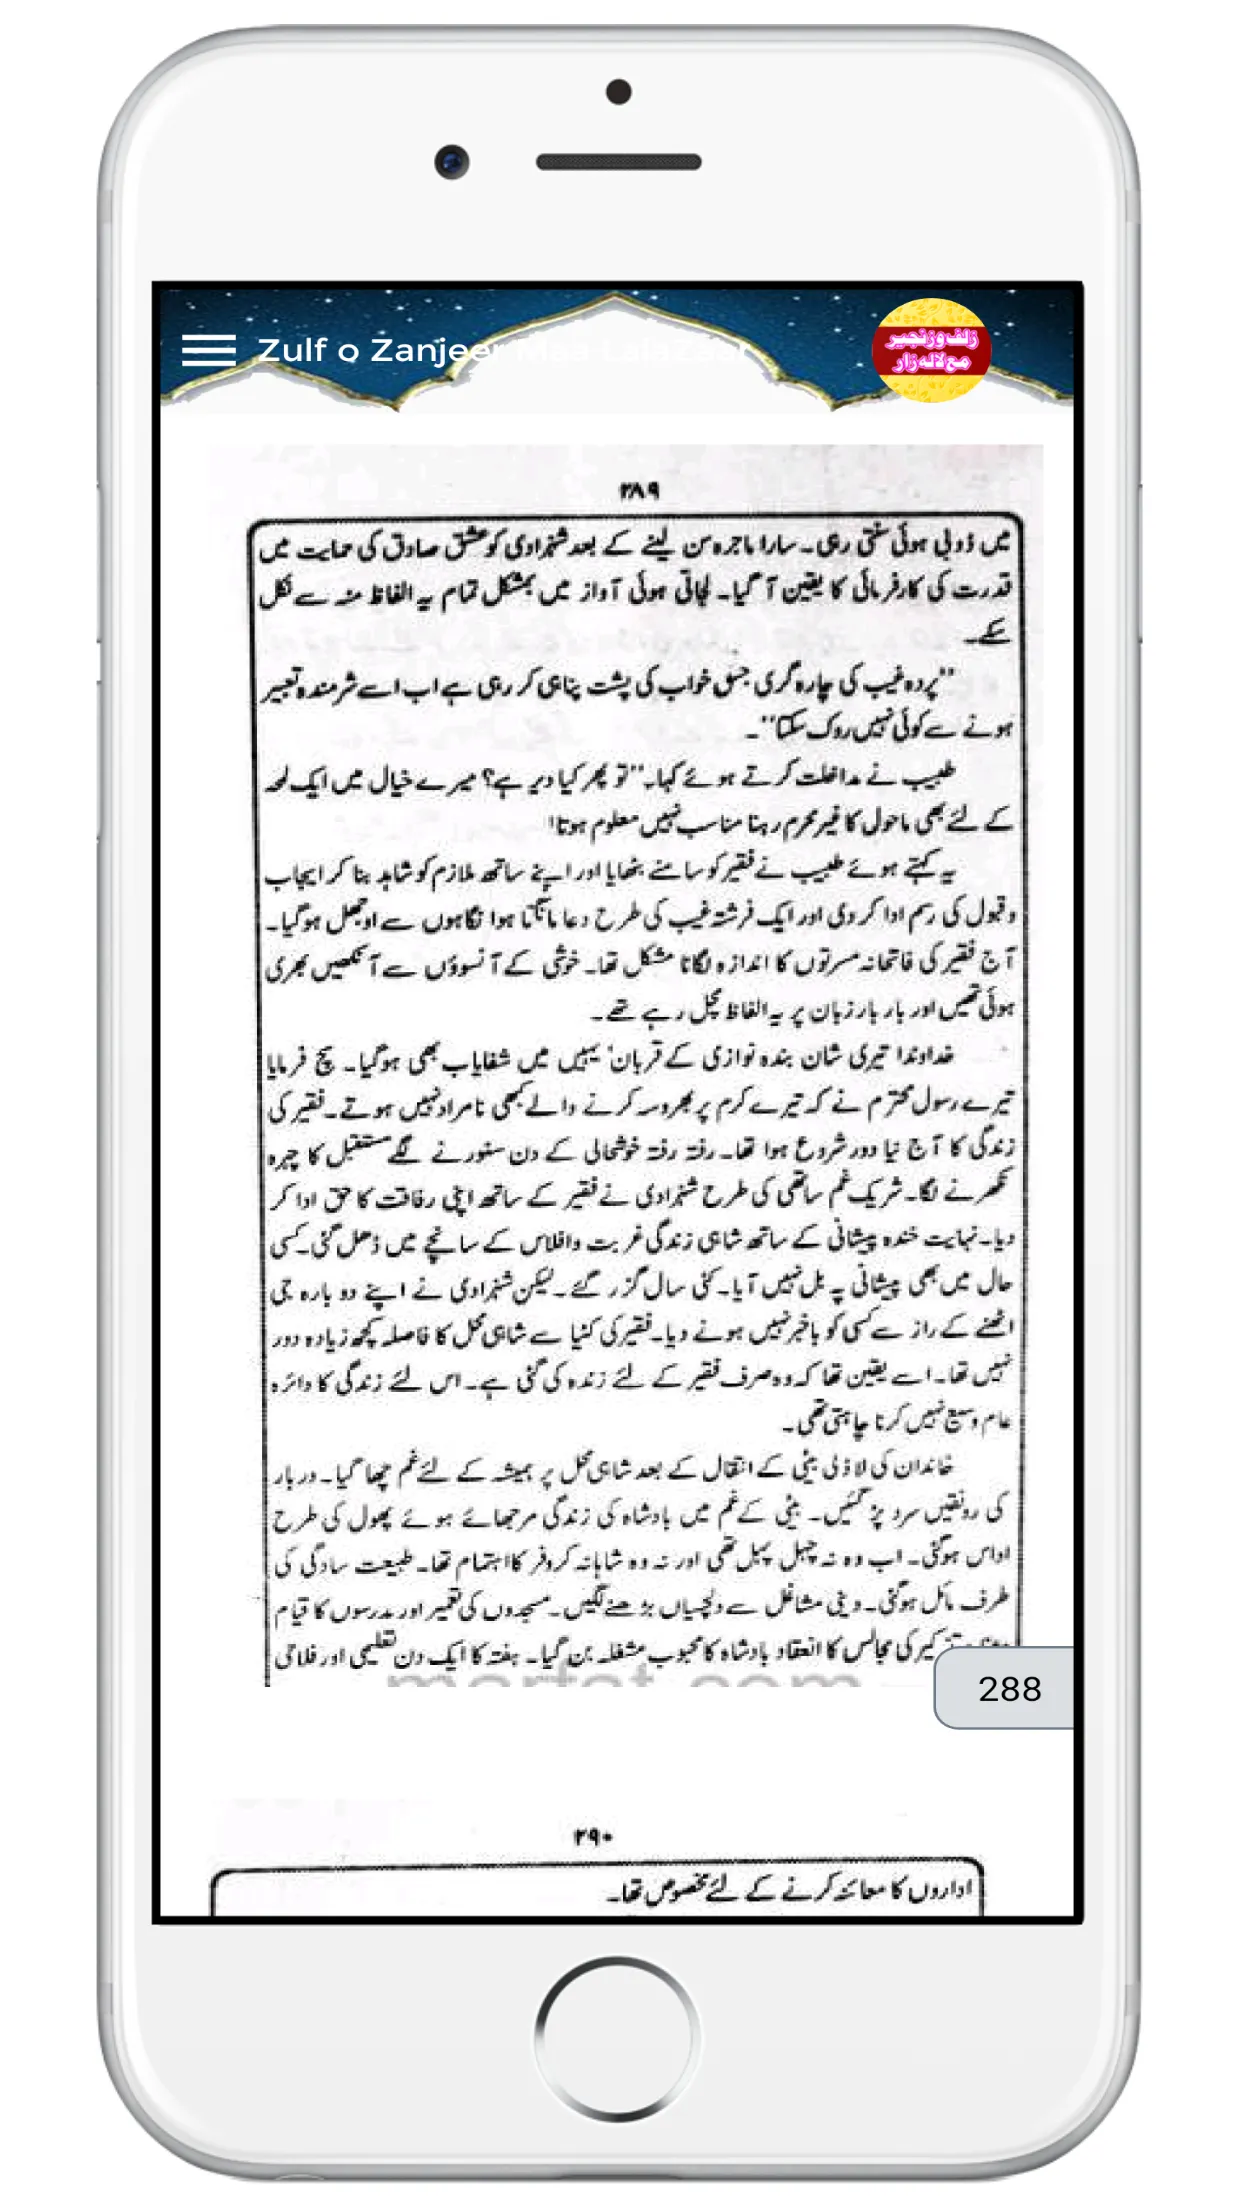 Zulf o Zanjeer Maa Lalazaar
زلف و زنجیر
مع لالہ زار
۲۸۹
میں ڈوبی ہوئی سنتی رہی۔ سارا ماجرہ سن لینے کے بعد شہزادی کو عشق صادق کی حمایت میں
قدرت کی کارفرمائی کا یقین آ گیا۔ لجاتی ہوئی آواز میں بمشکل تمام یہ الفاظ منہ سے نکل
سکے۔
''پردہ غیب کی چارہ گری جس خواب کی پشت پناہی کر رہی ہے اب اسے شرمندہ تعبیر
ہونے سے کوئی نہیں روک سکتا''۔
طبیب نے مداخلت کرتے ہوئے کہا۔ ''تو پھر کیا دیر ہے؟ میرے خیال میں ایک لمحہ
کے لئے بھی ماحول کا غیر محرم رہنا مناسب نہیں معلوم ہوتا!
یہ کہتے ہوئے طبیب نے فقیر کو سامنے بٹھایا اور اپنے ساتھ ملازم کو شاہد بنا کر ایجاب
و قبول کی رسم ادا کر دی اور ایک فرشتہ غیب کی طرح دعا مانگتا ہوا نگاہوں سے اوجھل ہو گیا۔
آج فقیر کی فاتحانہ مسرتوں کا اندازہ لگانا مشکل تھا۔ خوشی کے آنسوؤں سے آنکھیں بھری
ہوئی تھیں اور بار بار زبان پر یہ الفاظ مچل رہے تھے۔
خداوندا تیری شان بندہ نوازی کے قربان' یہیں میں شفایاب بھی ہو گیا۔ سچ فرمایا
تیرے رسول محترم نے کہ تیرے کرم پر بھروسہ کرنے والے کبھی نامراد نہیں ہوتے۔ فقیر کی
زندگی کا آج نیا دور شروع ہوا تھا۔ رفتہ رفتہ خوشحالی کے دن سنورنے لگے مستقبل کا چہرہ
نکھرنے لگا۔ شریک غم ساتھی کی طرح شہزادی نے فقیر کے ساتھ اپنی رفاقت کا حق ادا کر
دیا۔ نہایت خندہ پیشانی کے ساتھ شاہی زندگی غربت و افلاس کے سانچے میں ڈھل گئی۔ کسی
حال میں بھی پیشانی پہ بل نہیں آیا۔ کئی سال گزر گئے۔ لیکن شہزادی نے اپنے دو بارہ جی
اٹھنے کے راز سے کسی کو باخبر نہیں ہونے دیا۔ فقیر کی کٹیا سے شاہی محل کا فاصلہ کچھ زیادہ دور
نہیں تھا۔ اسے یقین تھا کہ وہ صرف فقیر کے لئے زندہ کی گئی ہے۔ اس لئے زندگی کا دائرہ
عام وسیع نہیں کرنا چاہتی تھی۔
خاندان کی لاڈلی بیٹی کے انتقال کے بعد شاہی محل پر ہمیشہ کے لئے غم چھا گیا۔ دربار
کی رونقیں سرد پڑ گئیں۔ بیٹی کے غم میں بادشاہ کی زندگی مرجھائے ہوئے پھول کی طرح
اداس ہو گئی۔ اب وہ نہ چہل پہل تھی اور نہ وہ شاہانہ کروفر کا اہتمام تھا۔ طبیعت سادگی کی
طرف مائل ہو گئی۔ دینی مشاغل سے دلچسپیاں بڑھنے لگیں۔ مسجدوں کی تعمیر اور مدرسوں کا قیام
کی مجالس کا انعقاد بادشاہ کا محبوب مشغلہ بن گیا۔ ہفتہ کا ایک دن تعلیمی اور فلاحی
288
۲۹۰
اداروں کا معائنہ کرنے کے لئے مخصوص تھا۔